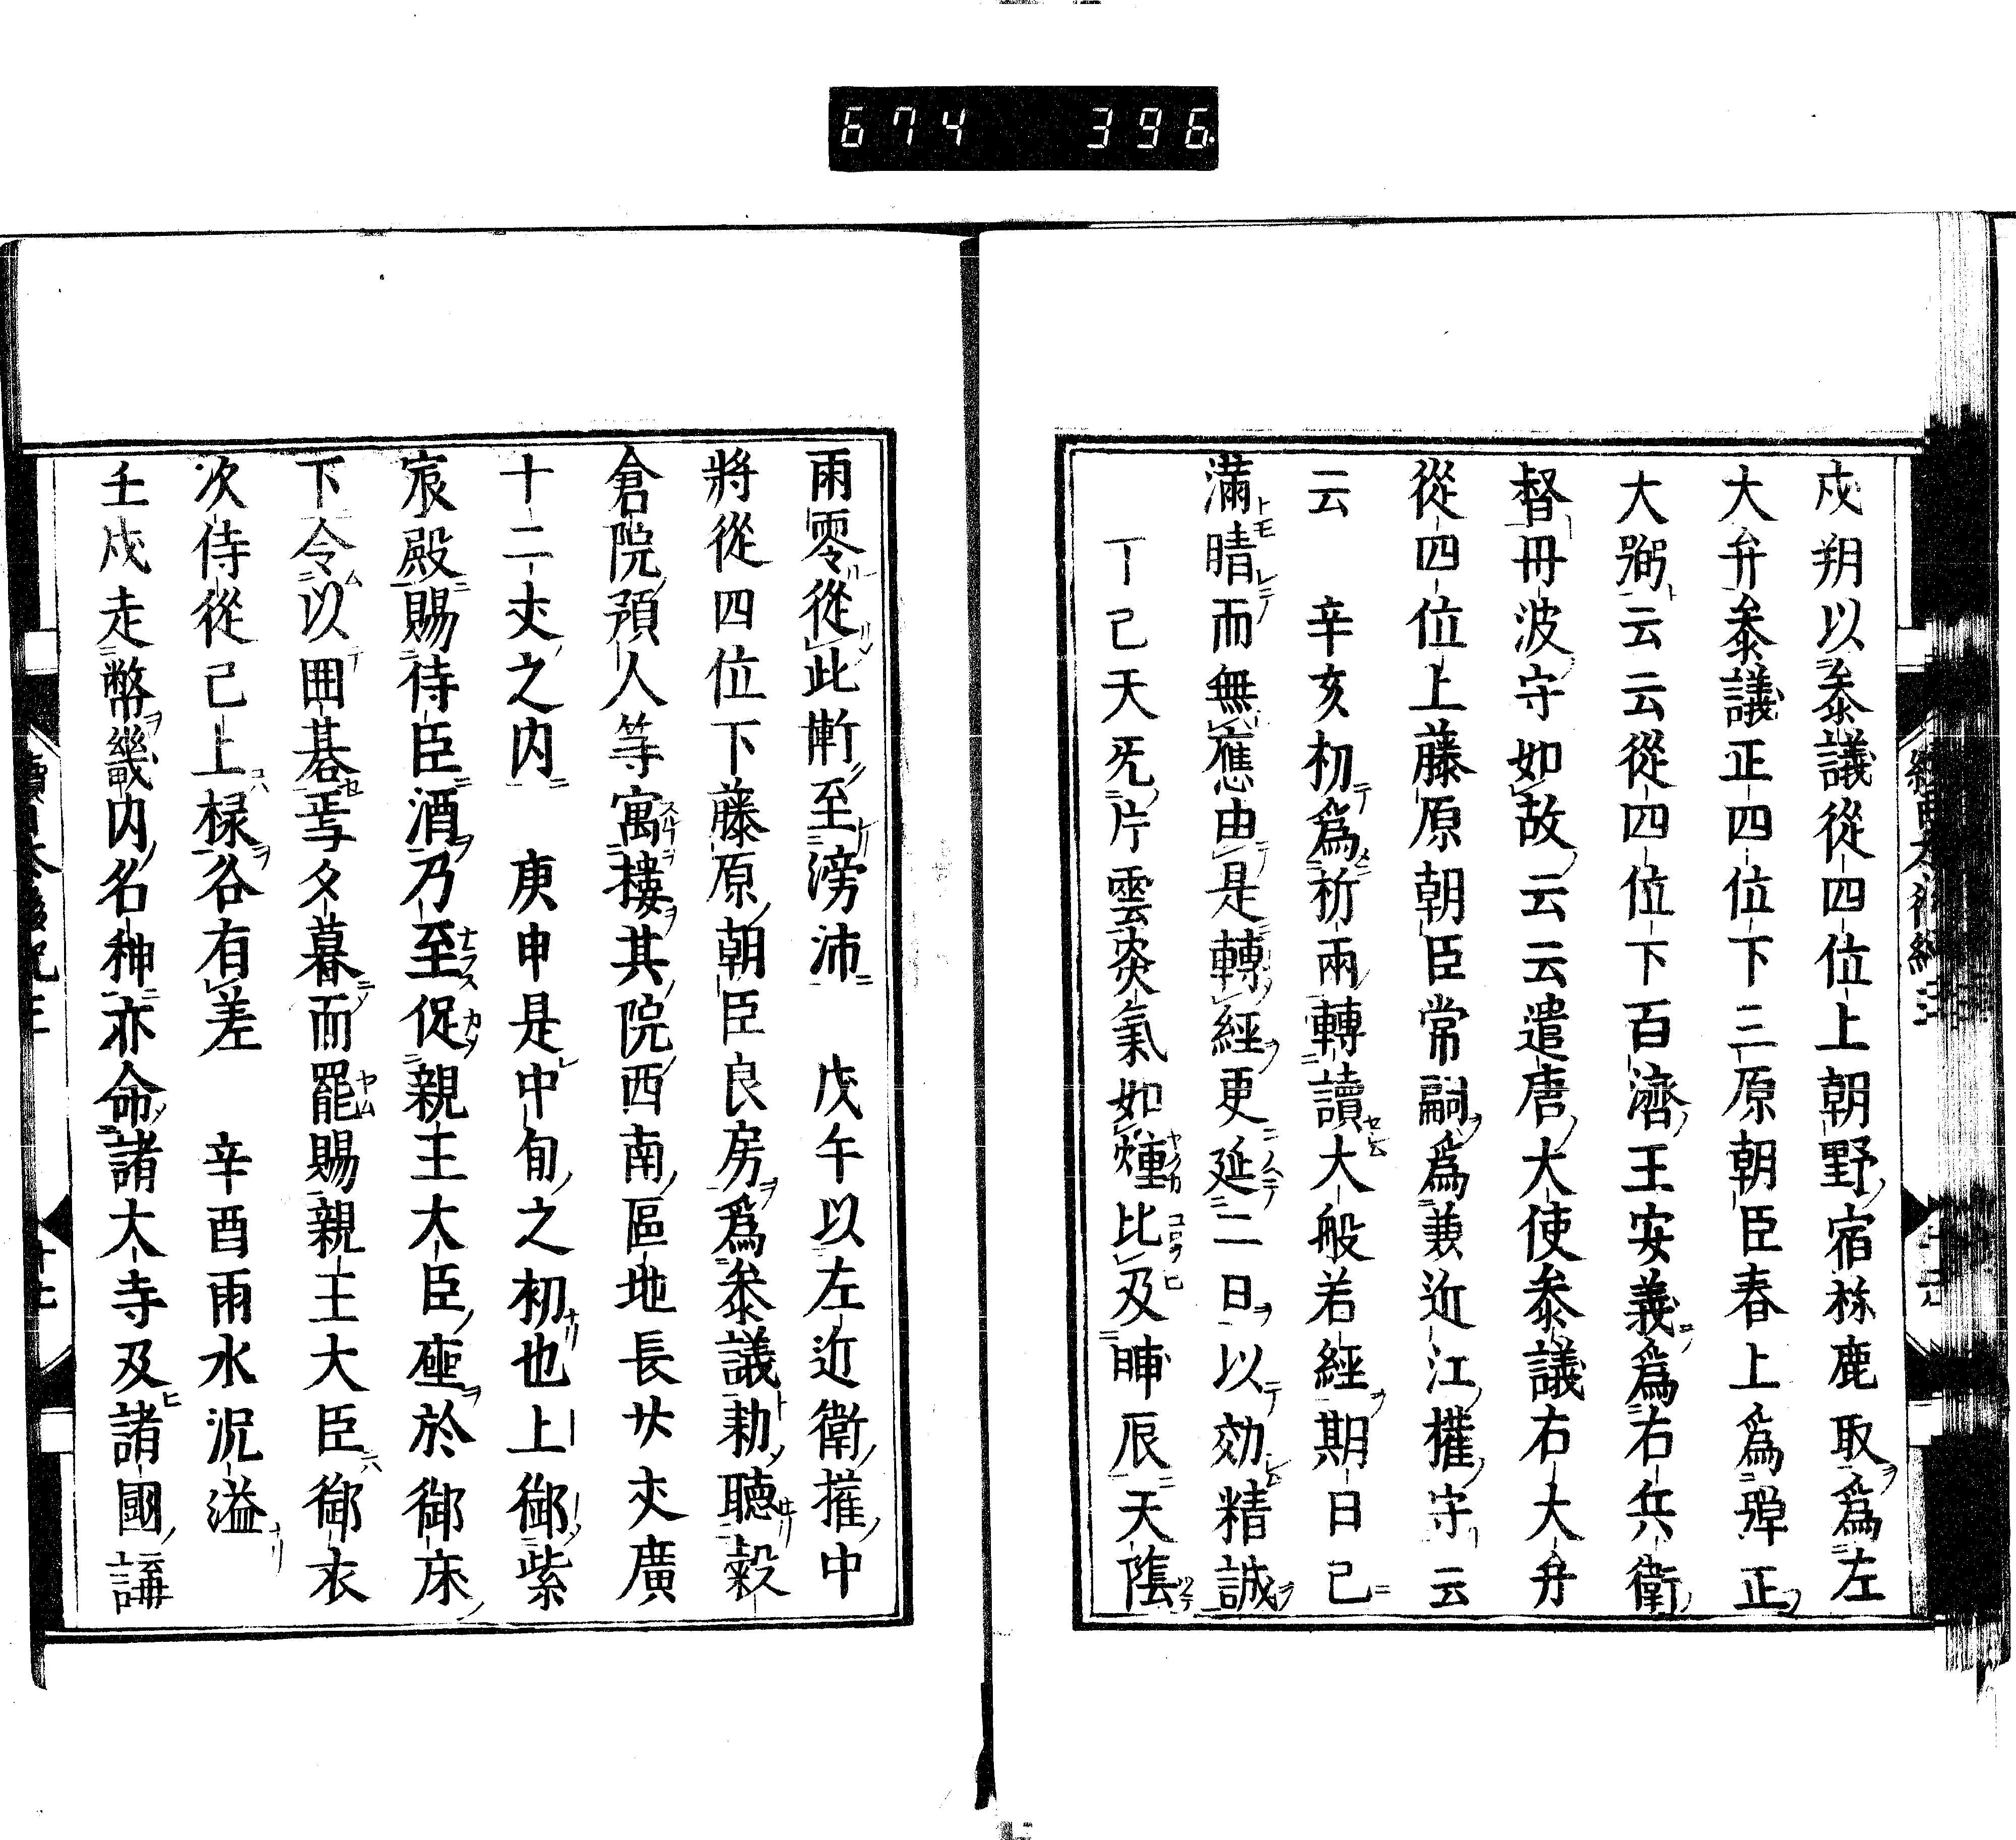 674 396
戌朔以叅議從四位上朝野宿祢鹿取爲左
大弁叅議正四位下三原朝臣春上爲彈正
大弼云云從四位下百濟王安義爲右兵衛
督丹波守如故云云遣唐大使叅議右大弁
從四位上藤原朝臣常嗣爲兼近江權守云
云　辛亥初爲祈雨轉讀大般若經期日已
滿晴而無應由是轉經更延二日以効精誠
丁已天旡片雲炎氣如煄比及晡辰天隂
雨零從此漸至滂沛　戊午以左近衛權中
將從四位下藤原朝臣良房爲叅議勅聽穀
倉院預人等寓樓其院西南區地長廿丈廣
十二丈之内　庚申是中旬之初也上御紫
宸殿賜侍臣酒乃至促親王大臣座於御床
下令以囲碁焉夕暮而罷賜親王大臣御衣
次侍從已上祿各有差　辛酉雨水況溢
壬戌走幣畿内名神亦命諸大寺及諸國講